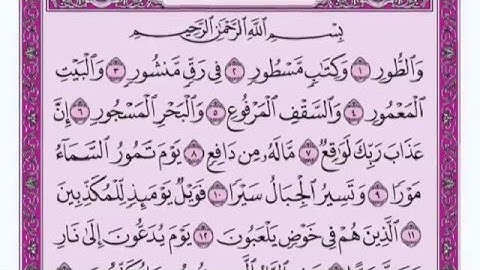 بِسْمِ اللَّهِ الرَّحْمَٰنِ الرَّحِيمِ
وَالطُّورِ ١ وَكِتَابٍ مَّسْطُورٍ ٢ فِي رَقٍّ مَّنشُورٍ ٣ وَالْبَيْتِ
الْمَعْمُورِ ٤ وَالسَّقْفِ الْمَرْفُوعِ ٥ وَالْبَحْرِ الْمَسْجُورِ ٦ إِنَّ
عَذَابَ رَبِّكَ لَوَاقِعٌ ٧ مَّا لَهُ مِن دَافِعٍ ٨ يَوْمَ تَمُورُ السَّمَاءُ
مَوْرًا ٩ وَتَسِيرُ الْجِبَالُ سَيْرًا ١٠ فَوَيْلٌ يَوْمَئِذٍ لِّلْمُكَذِّبِينَ
١١ الَّذِينَ هُمْ فِي خَوْضٍ يَلْعَبُونَ ١٢ يَوْمَ يُدَعُّونَ إِلَىٰ نَارِ